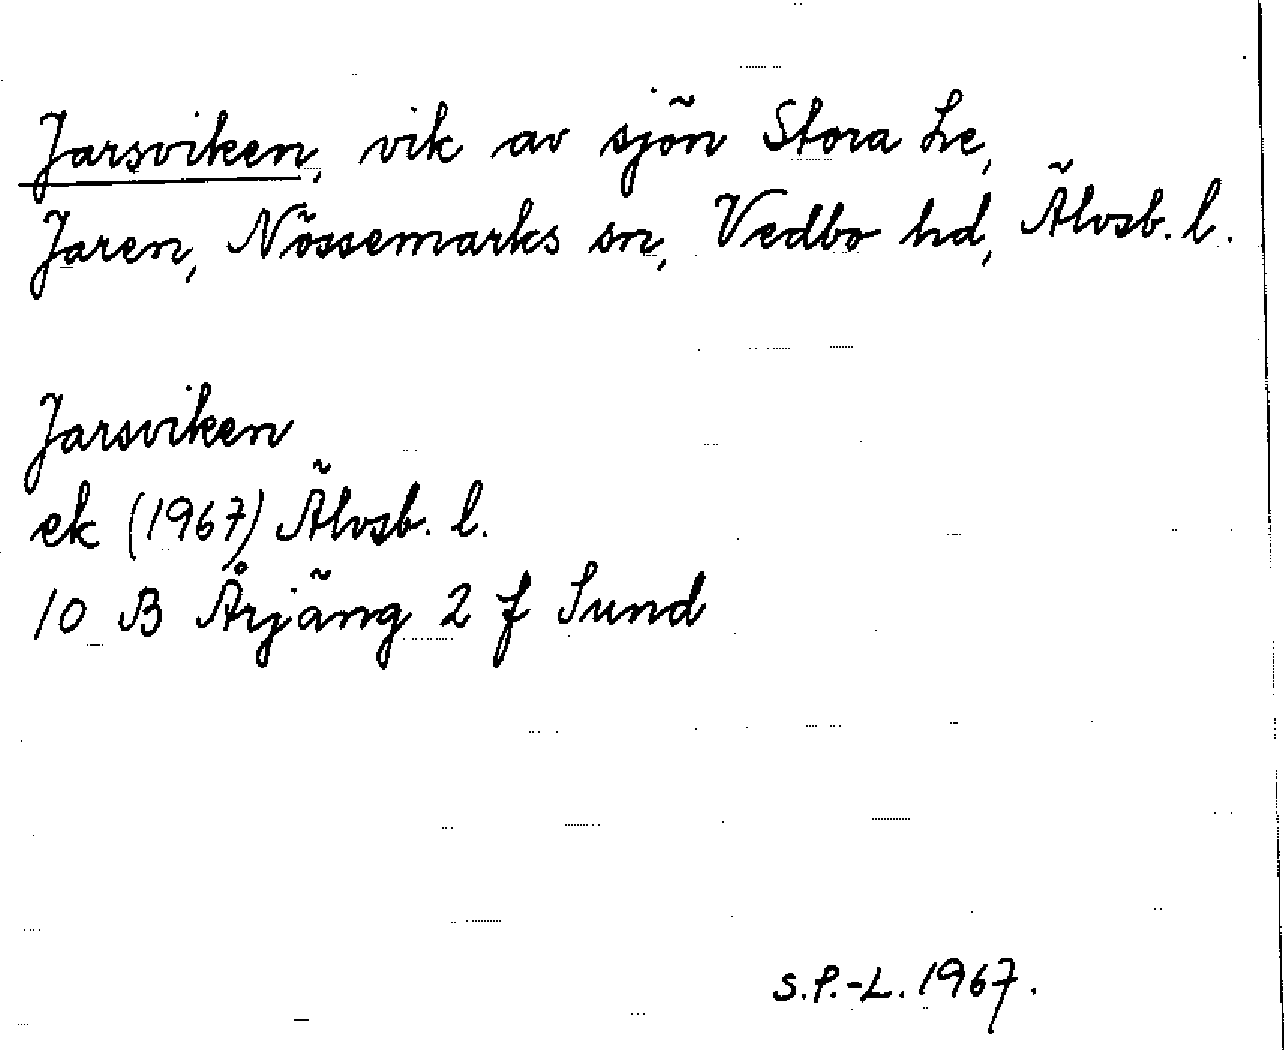 Jarsviken, vik av sjön Stora Le,
Jaren, Nössemarks sn, Vedbo hd, Älvsb. l.
Jarsviken
ek (1967) Älvsb. l.
10 B Årjäng 2 f Sund
S.P.-L. 1967.